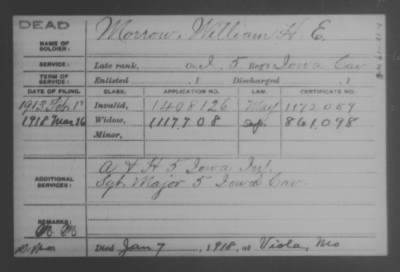 DEAD
NAME OF SOLDIER: Morrow, William H. E.
SERVICE: Late rank, Co. I, 5 Reg't Iowa Cav
TERM OF SERVICE: Enlisted , 1 Discharged , 1
DATE OF FILING. CLASS. APPLICATION NO. LAW. CERTIFICATE NO.
1913 Feb. 1 Invalid, 1408126 May 1172059
1918 Mar 16 Widow, 1117708 861098
Minor,
ADDITIONAL SERVICES: A & H 5 Iowa Inf.
Sgt. Major 5 Iowa Cav
REMARKS:
Died Jan 7, 1918, at Viola, Mo